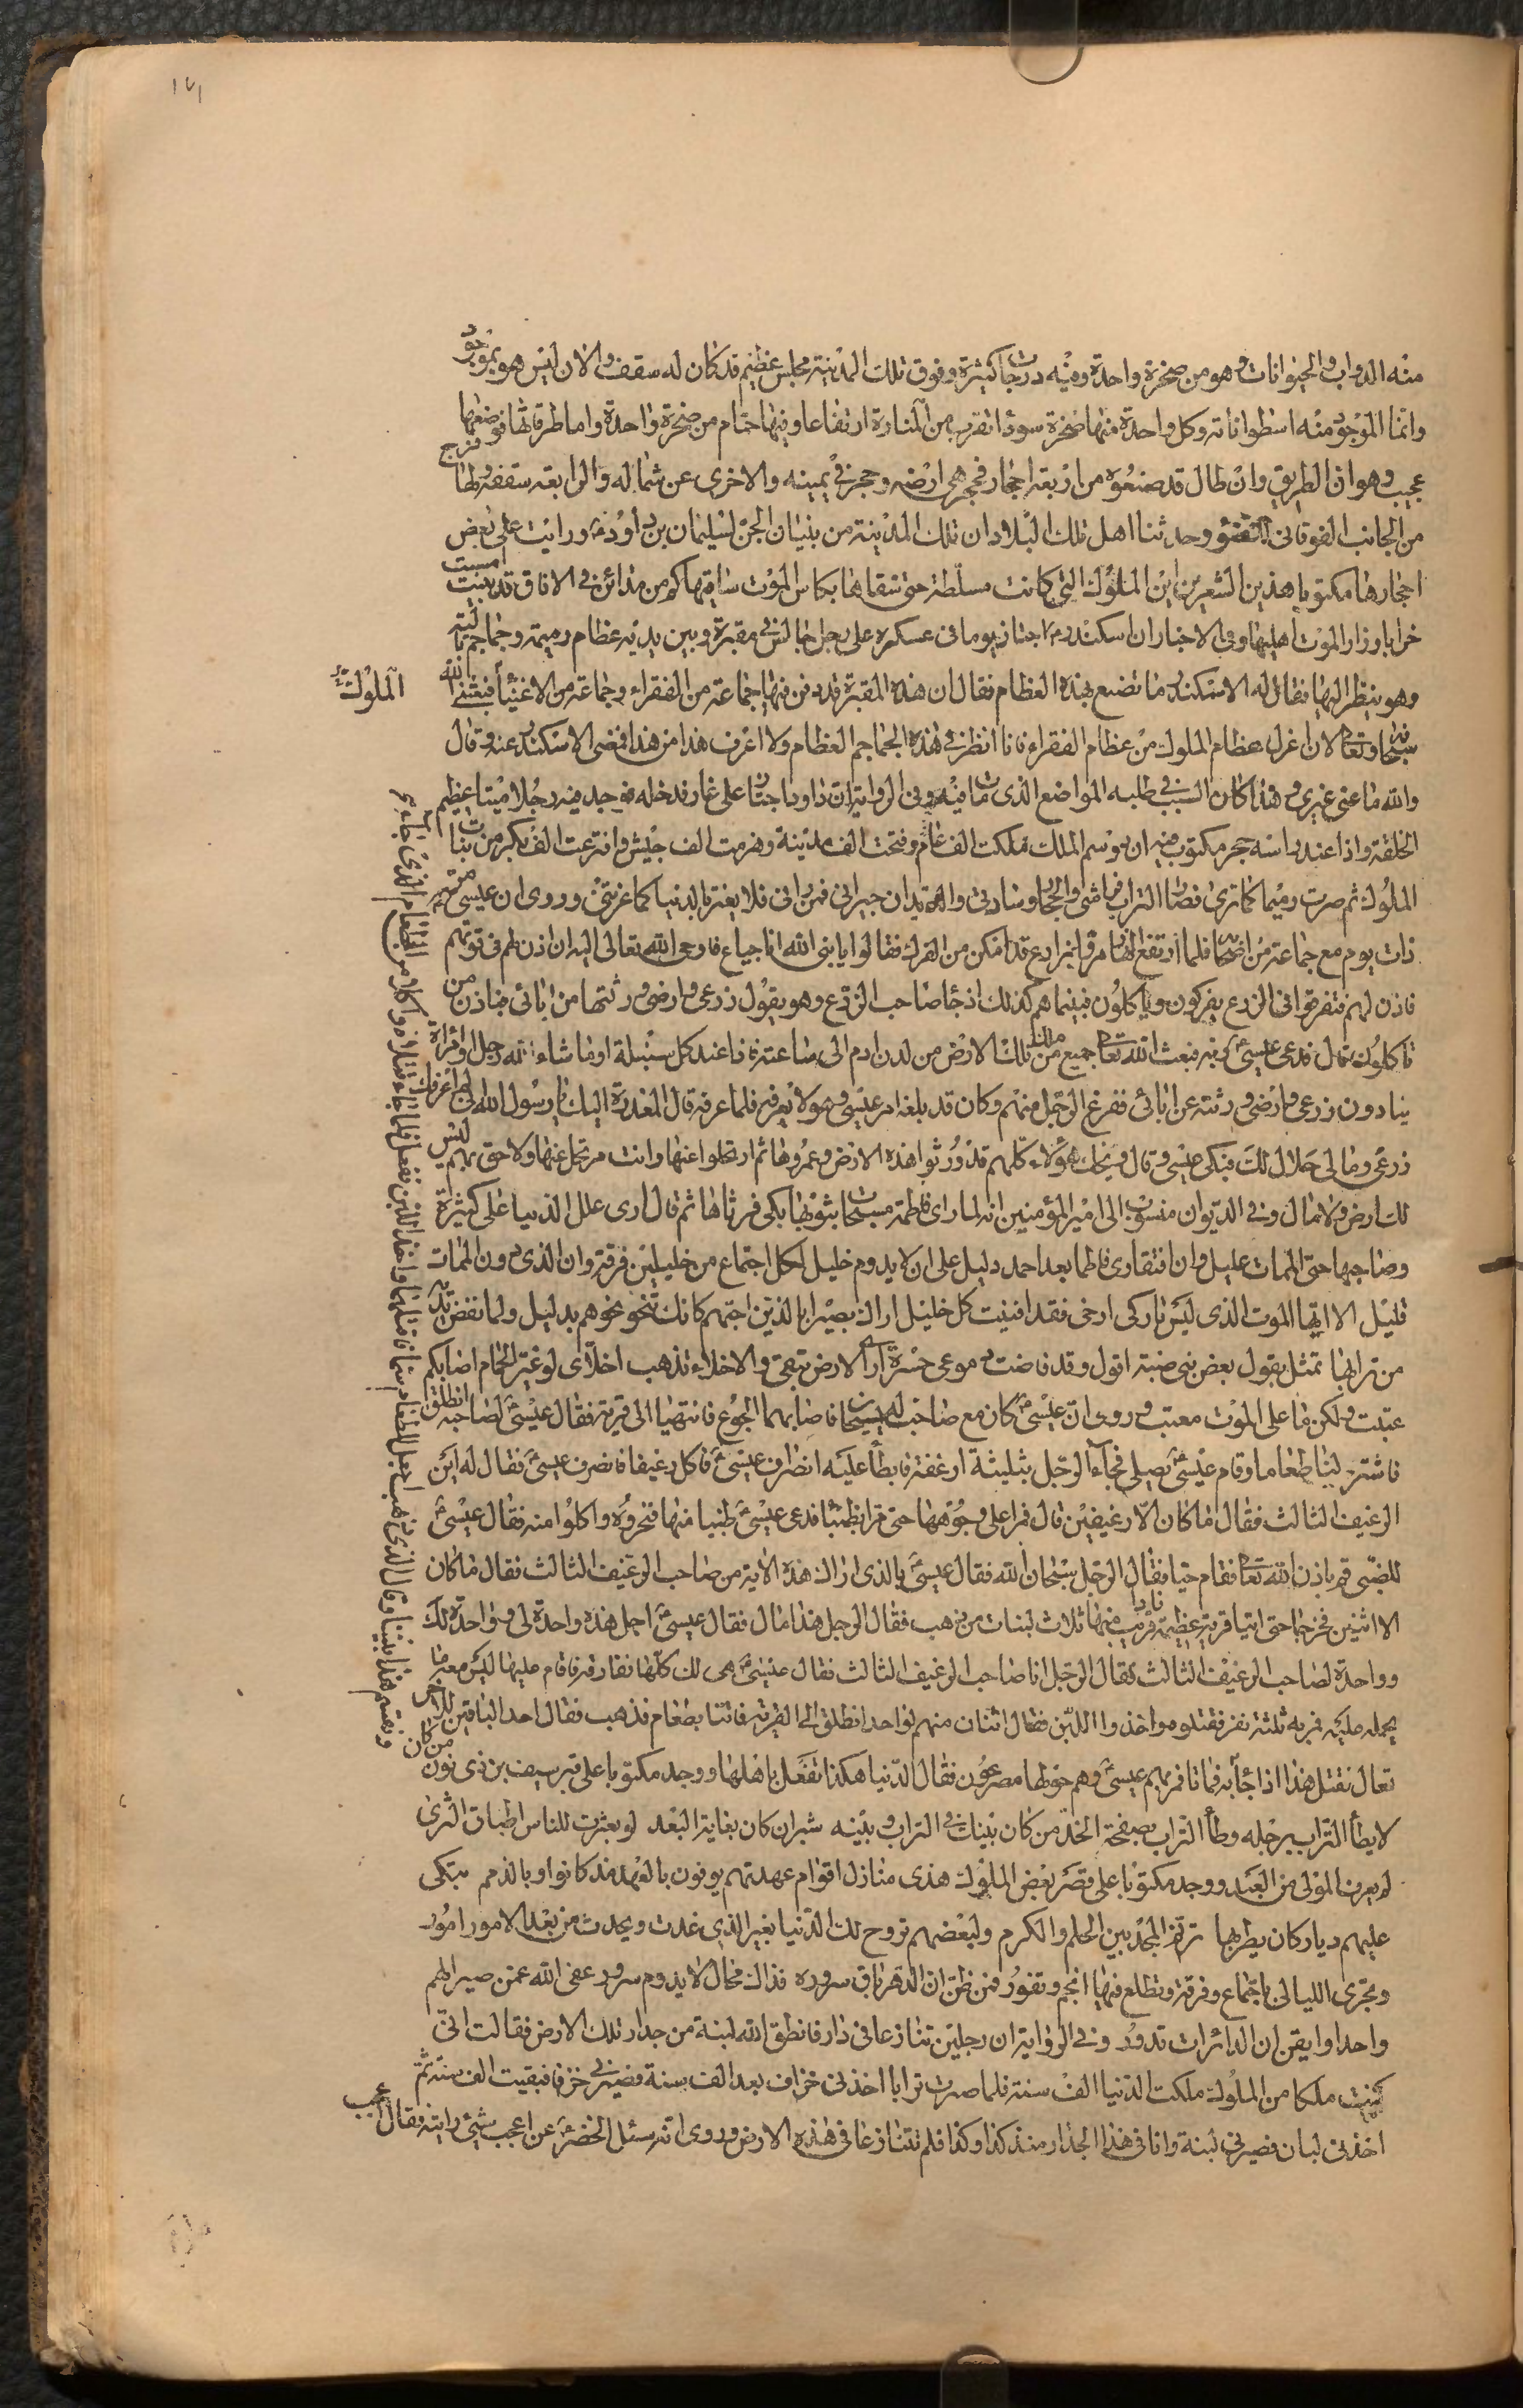 ١٧١
منه الدواب والحيوانات وهو من صخرة واحدة وفيه درجات كثيرة وفوق تلك المدينة مجلس عظيم قد كان له سقف والان ليس هو بموجود
وانما الموجود منه اسطوانات وكل واحدة منها صخرة سودا تقرب من المنارة ارتفاعا وفيها حمام من صخرة واحدة واما طرقاتها فوضعها
عجيب وهو ان الطريق وان طال قد صنعوه من اربعة احجار فحجر هي ارضه وحجر في يمينه والاخرى عن شماله والرابعة سقفه ولها فرج
من الجانب الفوقاني للضوء وحدثنا اهل تلك البلاد ان تلك المدينة من بنيان الجن لسليمان بن داود ع ورايت على بعض
احجارها مكتوبا هذين الشعرين اين الملوك التي كانت مسلطة حتى سقاها بكاس الموت ساقيها كم من مدائن في الافاق قد بنيت امست
خرابا وزار الموت اهليها وفي الاخبار ان اسكندر اجتاز يوما في عسكره على رجل جالس في مقبرة وبين يديه عظام رميمة وجماجم بالية
وهو ينظر اليها فقال له الاسكندر ما تصنع بهذه العظام فقال ان هذه المقبرة قد دفن فيها جماعة من الفقراء وجماعة من الاغنيا فبعثني الله
الملوك
سبحانه وتعا لان اعزل عظام الملوك من عظام الفقراء فانا انظر في هذه الجماجم العظام ولا اعرف هذا من هذا فمضى الاسكندر عنه وقال
والله ما عنى غيري وهذا كان السبب في طلبه المواضع الذي مات فيه وفي الرواية ان داود اجتاز على غار فدخله فوجد فيه رجلا ميتا عظيم
الخلقة واذا عند راسه حجر مكتوب فيه ان بوسم الملك ملكت الف عام وفتحت الف مدينة وهزمت الف جيش وافترعت الف بكر من بنات
الملوك ثم صرت رميما كما ترى فصار التراب فراشي والحجار وسادتي والديدان جيراني فمن راني فلا يغتر بالدنيا كما غرتني وروى ان عيسى ع مر
ذات يوم مع جماعة من اصحابه فلما ارتفع النهار مروا بزرع قد امكن من الفرك فقالوا يا نبي الله انا جياع فاوحى الله تعالى اليه ان اذن لهم في قوتهم
فاذن لهم فتفرقوا في الزرع يفركون وياكلون فبينما هم كذلك اذ جا صاحب الزرع وهو يقول زرعي وارضي ورثتها من ابائي فباذن من
تاكلون قال فدعى عيسى ربه فبعث الله تعا جميع من ملك تلك الارض من لدن ادم الى ساعته فاذا عند كل سنبلة او ما شاء الله رجل او امراة
ينادون زرعي وارضي ورثته عن ابائي ففزع الرجل منهم وكان قد بلغه امر عيسى وهو لا يعرفه فلما عرفه قال المعذرة اليك يا رسول الله اني لم اعرفك
زرعي ومالي حلال لك فبكى عيسى وقال ويحك هؤلاء كلهم قد ورثوا هذه الارض وعمروها ثم ارتحلوا عنها وانت مرتحل عنها ولاحق بهم ليس
لك ارض ولا مال وفي الديوان منسوب الى امير المؤمنين انه لما راى فاطمة مسجات بثوبها بكى فرثاها ثم قال ارى علل الدنيا على كثيرة
وصاحبها حتى الممات عليل وان افتقادى فاطما بعد احمد دليل على ان لا يدوم خليل لكل اجتماع من خليلين فرقة وان الذي دون الممات
قليل الا ايها الموت الذي ليس تاركي ارحني فقد افنيت كل خليل اراك بصيرا بالذين احبهم كانك تنحو نحوهم بدليل ولما نفض يده
من ترابها تمثل بقول بعض بني ضبة اقول وقد فاضت دموعي حسرة ارى الارض تبقى والاخلاء تذهب اخلاي لو غير الحمام اصابكم
عتبت ولكن ما على الموت معتب وروى ان عيسى ع كان مع صاحب له يسيحان فاصابهما الجوع فانتهيا الى قرية فقال عيسى لصاحبه انطلق
فاشتر لنا طعاما وقام عيسى ع يصلي فجاء الرجل بثلثة ارغفة فابطأ عليه انصراف عيسى ع فاكل رغيفا فانصرف عيسى ع فقال له اين
الرغيف الثالث فقال ما كان الا رغيفين قال فمرا على وجوههما حتى مرا بظبا فدعى عيسى ع ظبيا منها فنحروه واكلوا منه فقال عيسى ع
للضبي قم باذن الله تعا فقام حيا فقال الرجل سبحان الله فقال عيسى ع بالذي اراك هذه الاية من صاحب الرغيف الثالث فقال ما كان
الا اثنين فخرجا حتى اتيا قرية عظيمة خربة فاذا قريب منها ثلاث لبنات من ذهب فقال الرجل هذا مال فقال عيسى ع اجل هذه واحدة لي وواحدة لك
وواحدة لصاحب الرغيف الثالث فقال الرجل انا صاحب الرغيف الثالث فقال عيسى ع هي لك كلها ففارقه فاقام عليها ليس معه ما
يحمله عليه فمر به ثلثة نفر فقتلوه واخذوا اللبن فقال اثنان منهم لواحد انطلق الى القرية فاتنا بطعام فذهب فقال احد الباقين للاخر
تعال نقتل هذا اذا جا به فماتا فمر بهم عيسى ع وهم حولها مصرعون فقال الدنيا هكذا تفعل باهلها ووجد مكتوبا على قبر سيف بن ذي نون من كان
لا يطأ التراب برجله وطأ التراب بصفحة الخد من كان بينك في التراب وبينه شبران كان بغاية البعد لو بعثرت للناس اطباق الثرى
لم يعرف المولى من العبد ووجد مكتوبا على قصر بعض الملوك هذى منازل اقوام عهدتهم يوفون بالعهد مذ كانوا وبالذمم تبكى
عليهم ديار كان يطربها ترنم المجد بين الحلم والكرم ولبعضهم تروح لك الدنيا بغير الذي غدت ويحدث من بعد الامور امور
وتجرى الليالي باجتماع وفرقة وتطلع فيها انجم وتغور فمن ظن ان الدهر باق سروره فذاك محال لا يدوم سرور عفى الله عمن صير الهم
واحدا وايقن ان الدائرات تدور وفي الرواية ان رجلين تنازعا في دار فانطق الله لبنة من جدار تلك الارض فقالت اني
كنت ملكا من الملوك ملكت الدنيا الف سنة فلما صرت ترابا اخذني خزاف بعد الف سنة فصيرني خزفا فبقيت الف سنة ثم
اخذني لبان فصيرني لبنة وانا في هذا الجدار منذ كذا وكذا فلم تتنازعا في هذه الارض وروى انه سئل الخضر ع عن اعجب شيئ رايته فقال اعجب